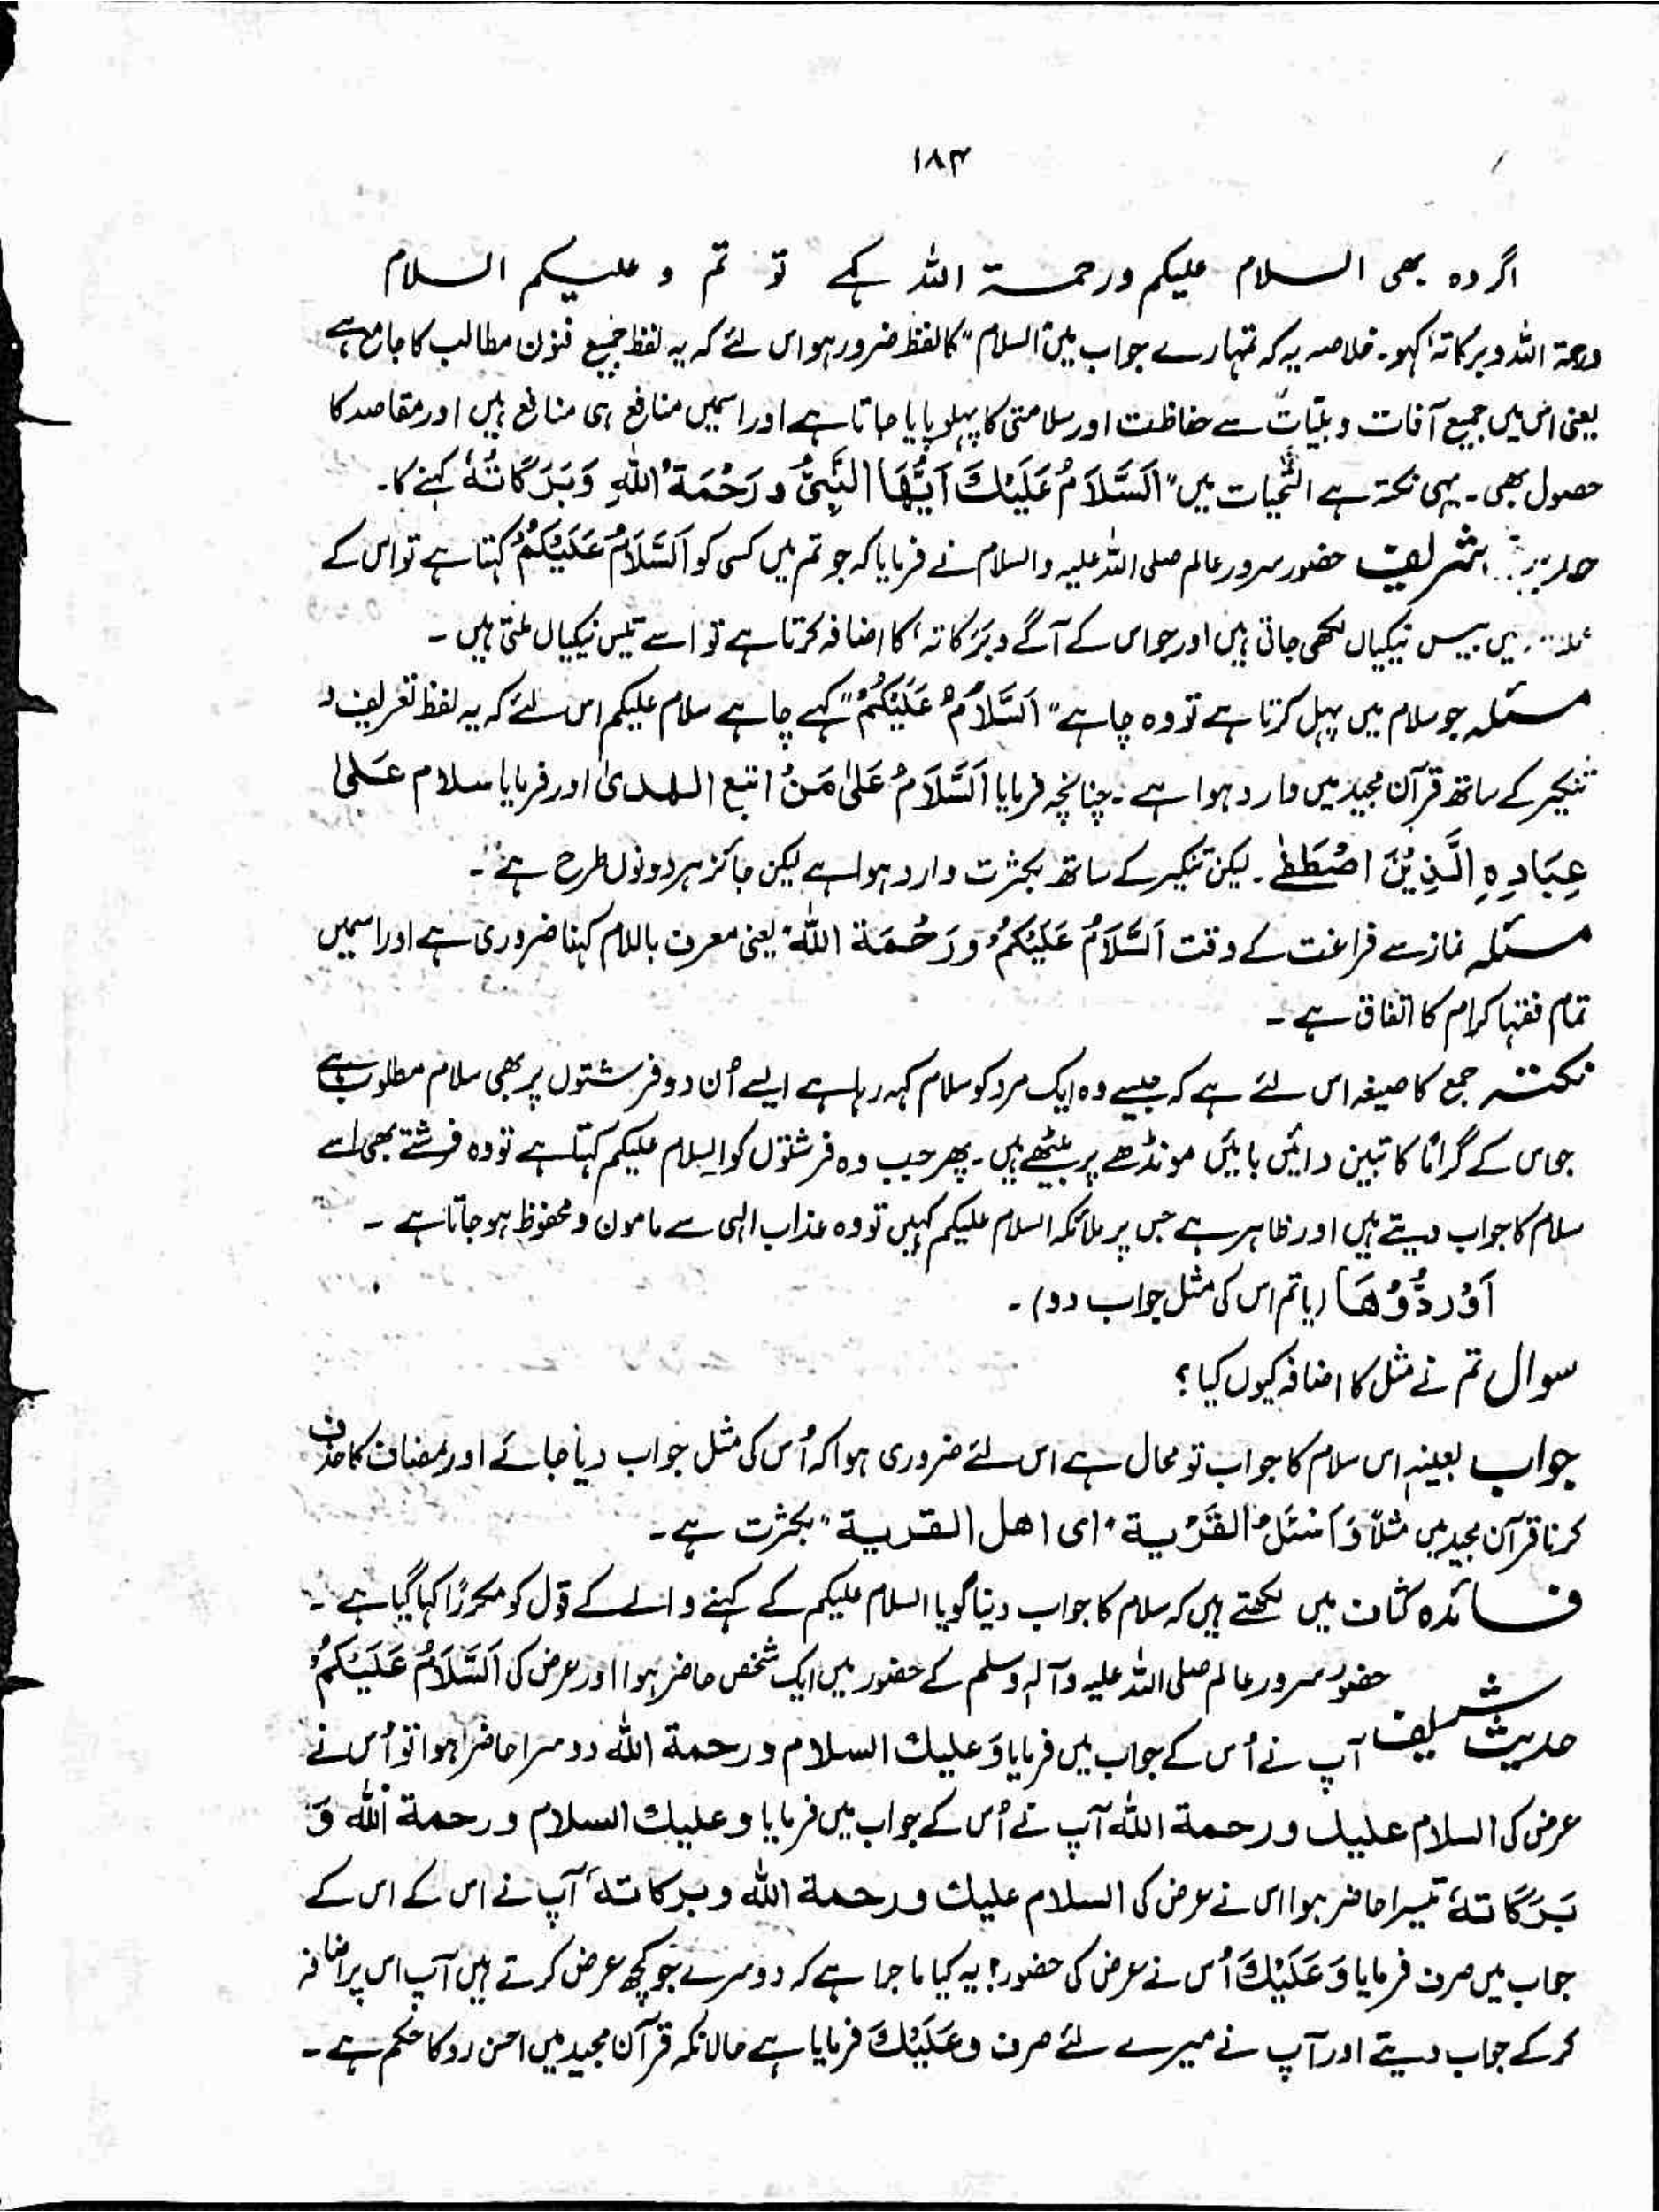 ۱۸۴
اگر وہ بھی السلام علیکم ورحمۃ اللہ کہے تو تم و علیکم السلام
ورحمۃ اللہ وبرکاتہٗ کہو۔ خلاصہ یہ کہ تمہارے جواب میں "السلام" کا لفظ ضرور ہو اس لئے کہ یہ لفظ جمیع فنون مطالب کا جامع ہے
یعنی اس میں جمیع آفات و بلیّات سے حفاظت اور سلامتی کا پہلو پایا جاتا ہے اور اسمیں منافع ہی منافع ہیں اور مقاصد کا
حصول بھی۔ یہی نکتہ ہے التّحیات میں "اَلسَّلاَمُ عَلَیْكَ اَیُّهَا النَّبِیُّ وَرَحْمَةُ اللهِ وَبَرَكَاتُهٗ کہنے کا۔
شریف حضور سرور عالم صلی اللہ علیہ والسلام نے فرمایا کہ جو تم میں کسی کو اَلسَّلَامُ عَلَیْكُمْ کہتا ہے تو اس کے
میں بیس نیکیاں لکھی جاتی ہیں اور جو اس کے آگے وبَرَکاتہٗ کا اضافہ کرتا ہے تو اسے تیس نیکیاں ملتی ہیں۔
مسئلہ جو سلام میں پہل کرتا ہے تو وہ چاہے "اَلسَّلاَمُ عَلَیْكُمْ" کہے چاہے سلام علیکم اس لئے کہ یہ لفظ تعریف و
تنکیر کے ساتھ قرآن مجید میں وارد ہوا ہے۔ چنانچہ فرمایا اَلسَّلَامُ عَلیٰ مَنُ اتبع الهدىٰ اور فرمایا سلام عَلیٰ
عِبَادِهِ الَّذِیْنَ اصْطَفٰے۔ لیکن تنکیر کے ساتھ بکثرت وارد ہوا ہے لیکن جائز ہر دونوں طرح ہے۔
مسئلہ نماز سے فراغت کے وقت اَلسَّلَامُ عَلَیْكُمْ وَرَحْمَة اللهُ یعنی معرف باللام کہنا ضروری ہے اور اسمیں
تمام فقہا کرام کا اتفاق ہے۔
نکتہ جمع کا صیغہ اس لئے ہے کہ جیسے وہ ایک مرد کو سلام کہہ رہا ہے ایسے اُن دو فرشتوں پر بھی سلام مطلوب ہے
جو اس کے کراماً کاتبین دائیں بائیں مونڈھے پر بیٹھے ہیں۔ پھر جب وہ فرشتوں کو السلام علیکم کہتا ہے تو وہ فرشتے بھی اسے
سلام کا جواب دیتے ہیں اور ظاہر ہے جس پر ملائکہ السلام علیکم کہیں تو وہ عذاب الہی سے مامون و محفوظ ہو جاتا ہے۔
اَوْ رُدُّوْهَا (یا تم اس کی مثل جواب دو)۔
سوال تم نے مثل کا اضافہ کیوں کیا؟
جواب بعینہٖ اس سلام کا جواب تو محال ہے اس لئے ضروری ہوا کہ اُس کی مثل جواب دیا جائے اور مضاف کا حذف
کرنا قرآن مجید میں مثلاً وَاسْئَلُ القَرْیة "ای اهل القریة" بکثرت ہے۔
فائدہ کشاف میں لکھتے ہیں کہ سلام کا جواب دینا گویا السلام علیکم کے کہنے والے کے قول کو مکررًا کہا گیا ہے۔
حضور سرور عالم صلی اللہ علیہ وآلہٖ وسلم کے حضور میں ایک شخص حاضر ہوا اور عرض کی اَلسَّلَامُ عَلَیْكُمْ
حدیث شریف آپ نے اُس کے جواب میں فرمایا وَعلیك السلام ورحمة الله دوسرا حاضر ہوا تو اُس نے
عرض کی السلام علیك ورحمة الله آپ نے اُس کے جواب میں فرمایا وعلیك السلام ورحمة الله وَ
بَرَكَاتهٗ تیسرا حاضر ہوا اس نے عرض کی السلام علیك ورحمة الله وبركاتهٗ آپ نے اس کے اس کے
جواب میں صرف فرمایا وَعَلَیْكَ اُس نے عرض کی حضور! یہ کیا ماجرا ہے کہ دوسرے جو کچھ عرض کرتے ہیں آپ اس پر اضافہ
کر کے جواب دیتے اور آپ نے میرے لئے صرف وعَلَیْكَ فرمایا ہے حالانکہ قرآن مجید میں احسن رد کا حکم ہے۔